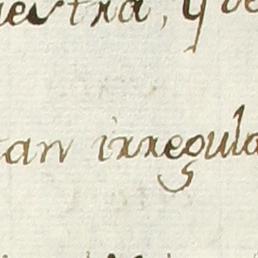 uestra, y de
tan irregula